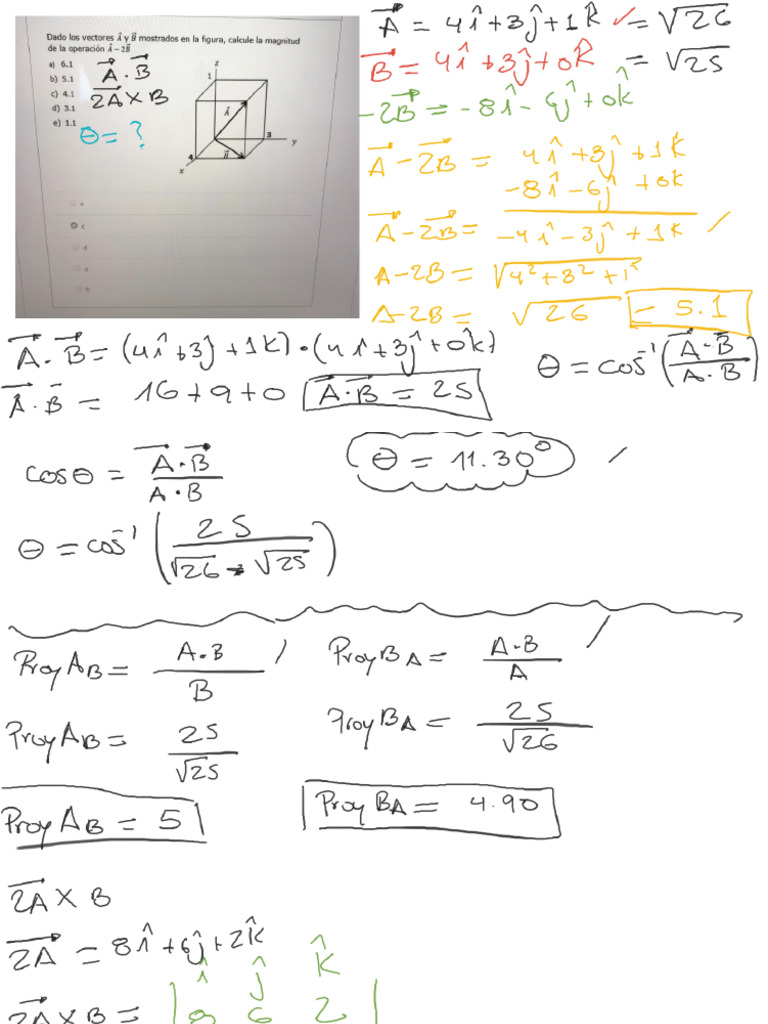 Dado los vectores A⃗ y B⃗ mostrados en la figura, calcule la magnitud
de la operación A⃗ − 2B⃗
a) 6.1
b) 5.1
c) 4.1
d) 3.1
e) 1.1
A⃗ . B⃗
2A⃗ × B
θ = ?
z
1
A⃗
3
y
B⃗
4
x
a
c
d
e
b
A⃗ = 4î + 3ĵ + 1k̂ ✓ = √26
B⃗ = 4î + 3ĵ + 0k̂ = √25
-2B⃗ = -8î - 6ĵ + 0k̂
A⃗ - 2B⃗ = 4î + 3ĵ + 1k̂
-8î - 6ĵ + 0k̂
A⃗ - 2B⃗ = -4î - 3ĵ + 1k̂
A - 2B = √4² + 3² + 1²
A - 2B = √26 = 5.1
A⃗ . B⃗ = (4î + 3ĵ + 1k̂) • (4î + 3ĵ + 0k̂)
A⃗ . B⃗ = 16 + 9 + 0 A⃗.B⃗ = 25
θ = cos⁻¹ (A⃗.B⃗ / A.B)
cosθ = A⃗.B⃗ / A.B
θ = 11.30°
θ = cos⁻¹ (25 / √26 • √25)
Proy A_B = A.B / B
Proy B_A = A.B / A
Proy A_B = 25 / √25
Proy B_A = 25 / √26
Proy A_B = 5
Proy B_A = 4.90
2A⃗ × B
2A⃗ = 8î + 6ĵ + 2k̂
î ĵ k̂
2A⃗ × B = | 8 6 2 |